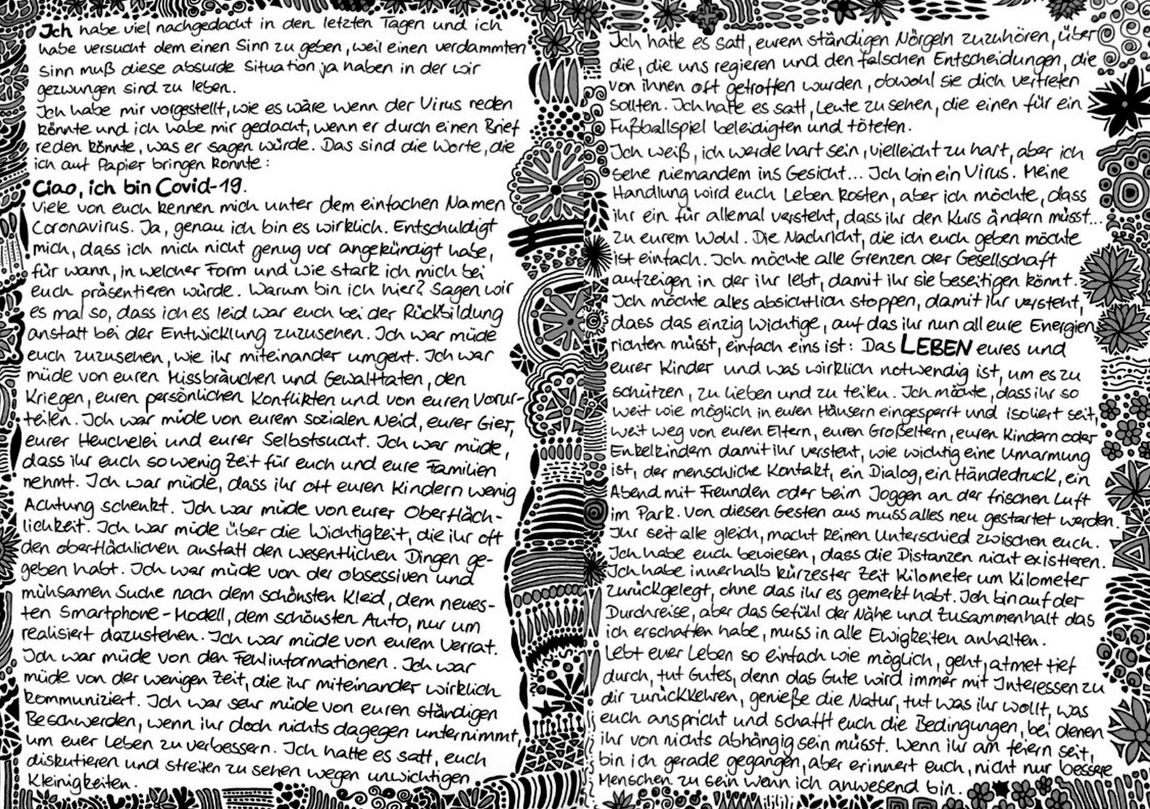 Ich habe viel nachgedacht in den letzten Tagen und ich
habe versucht dem einen Sinn zu geben, weil einen verdammten
Sinn muß diese absurde Situation ja haben in der wir
gezwungen sind zu leben.
Ich habe mir vorgestellt, wie es wäre wenn der Virus reden
könnte und ich habe mir gedacht, wenn er durch einen Brief
reden könnte, was er sagen würde. Das sind die Worte, die
ich auf Papier bringen konnte:
Ciao, ich bin Covid-19.
Viele von euch kennen mich unter dem einfachen Namen
Coronavirus. Ja, genau ich bin es wirklich. Entschuldigt
mich, dass ich mich nicht genug vor angekündigt habe,
für wann, in welcher Form und wie stark ich mich bei
euch präsentieren würde. Warum bin ich hier? Sagen wir
es mal so, dass ich es leid war euch bei der Rückbildung
anstatt bei der Entwicklung zuzusehen. Ich war müde
euch zuzusehen, wie ihr miteinander umgeht. Ich war
müde von euren Missbräuchen und Gewalttaten, den
Kriegen, euren persönlichen Konflikten und von euren Vorur-
teilen. Ich war müde von eurem sozialen Neid, eurer Gier,
eurer Heuchelei und eurer Selbstsucht. Ich war müde,
dass ihr euch so wenig Zeit für euch und eure Familien
nehmt. Ich war müde, dass ihr oft euren Kindern wenig
Achtung schenkt. Ich war müde von eurer Oberfläch-
lichkeit. Ich war müde über die Wichtigkeit, die ihr oft
den oberflächlichen anstatt den wesentlichen Dingen ge-
geben habt. Ich war müde von der obsessiven und
mühsamen Suche nach dem schönsten Kleid, dem neues-
ten Smartphone-Modell, dem schönsten Auto, nur um
realisiert dazustehen. Ich war müde von eurem Verrat.
Ich war müde von den Fehlinformationen. Ich war
müde von der wenigen Zeit, die ihr miteinander wirklich
kommuniziert. Ich war sehr müde von euren ständigen
Beschwerden, wenn ihr doch nichts dagegen unternimmt,
um euer Leben zu verbessern. Ich hatte es satt, euch
diskutieren und streiten zu sehen wegen unwichtigen
Kleinigkeiten.
Ich hatte es satt, eurem ständigen Nörgeln zuzuhören, über
die, die uns regieren und den falschen Entscheidungen, die
von ihnen oft getroffen wurden, obwohl sie dich vertreten
sollten. Ich hatte es satt, Leute zu sehen, die einen für ein
Fußballspiel beleidigten und töteten.
Ich weiß, ich werde hart sein, vielleicht zu hart, aber ich
sehe niemandem ins Gesicht... Ich bin ein Virus. Meine
Handlung wird euch Leben kosten, aber ich möchte, dass
ihr ein für allemal versteht, dass ihr den Kurs ändern müsst...
zu eurem Wohl. Die Nachricht, die ich euch geben möchte
ist einfach. Ich möchte alle Grenzen der Gesellschaft
aufzeigen in der ihr lebt, damit ihr sie beseitigen könnt.
Ich möchte alles absichtlich stoppen, damit ihr versteht,
dass das einzig wichtige, auf das ihr nun all eure Energien
richten müsst, einfach eins ist: Das LEBEN eures und
eurer Kinder und was wirklich notwendig ist, um es zu
schützen, zu lieben und zu teilen. Ich möchte, dass ihr so
weit wie möglich in euren Häusern eingesperrt und isoliert seit,
weit weg von euren Eltern, euren Großeltern, euren Kindern oder
Enkelkindern damit ihr versteht, wie wichtig eine Umarmung
ist, der menschliche Kontakt, ein Dialog, ein Händedruck, ein
Abend mit Freunden oder beim Joggen an der frischen Luft
im Park. Von diesen Gesten aus muss alles neu gestartet werden.
Ihr seit alle gleich, macht keinen Unterschied zwischen euch.
Ich habe euch bewiesen, dass die Distanzen nicht existieren.
Ich habe innerhalb kürzester Zeit Kilometer um Kilometer
zurückgelegt, ohne das ihr es gemerkt habt. Ich bin auf der
Durchreise, aber das Gefühl der Nähe und Zusammenhalt das
ich erschaffen habe, muss in alle Ewigkeiten anhalten.
Lebt euer Leben so einfach wie möglich, geht, atmet tief
durch, tut Gutes, denn das Gute wird immer mit Interessen zu
dir zurückkehren, genieße die Natur, tut was ihr wollt, was
euch anspricht und schafft euch die Bedingungen, bei denen
ihr von nichts abhängig sein müsst. Wenn ihr am feiern seit,
bin ich gerade gegangen, aber erinnert euch, nicht nur bessere
Menschen zu sein wenn ich anwesend bin.